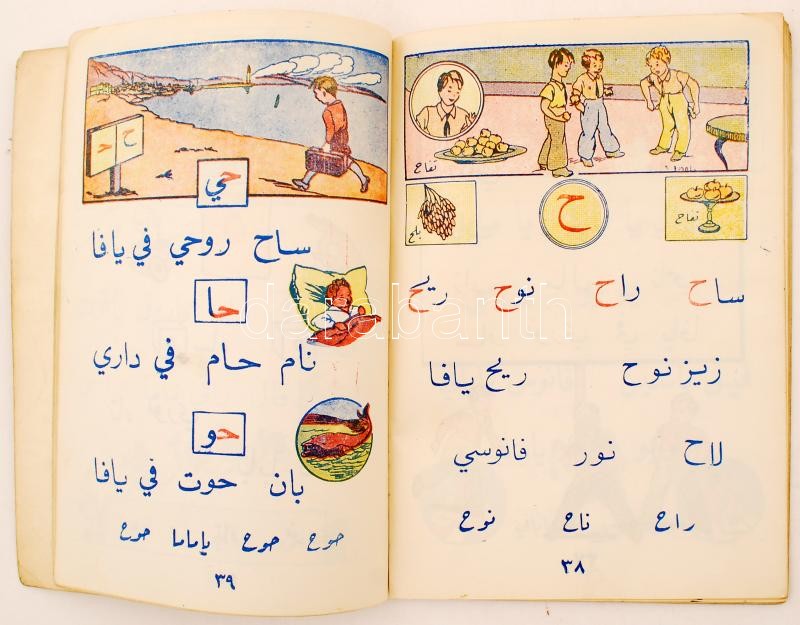 تفاح
بلح
ح
تفاح
ساح راح نوح ريح
زيز نوح ريح يافا
لاح نور فانوسي
راح ناح نوح
٣٨
ح
حي
ساح روحي في يافا
حا
نام حام في داري
حو
بان حوت في يافا
حوح حوح ياماما حوح
٣٩
darabanth